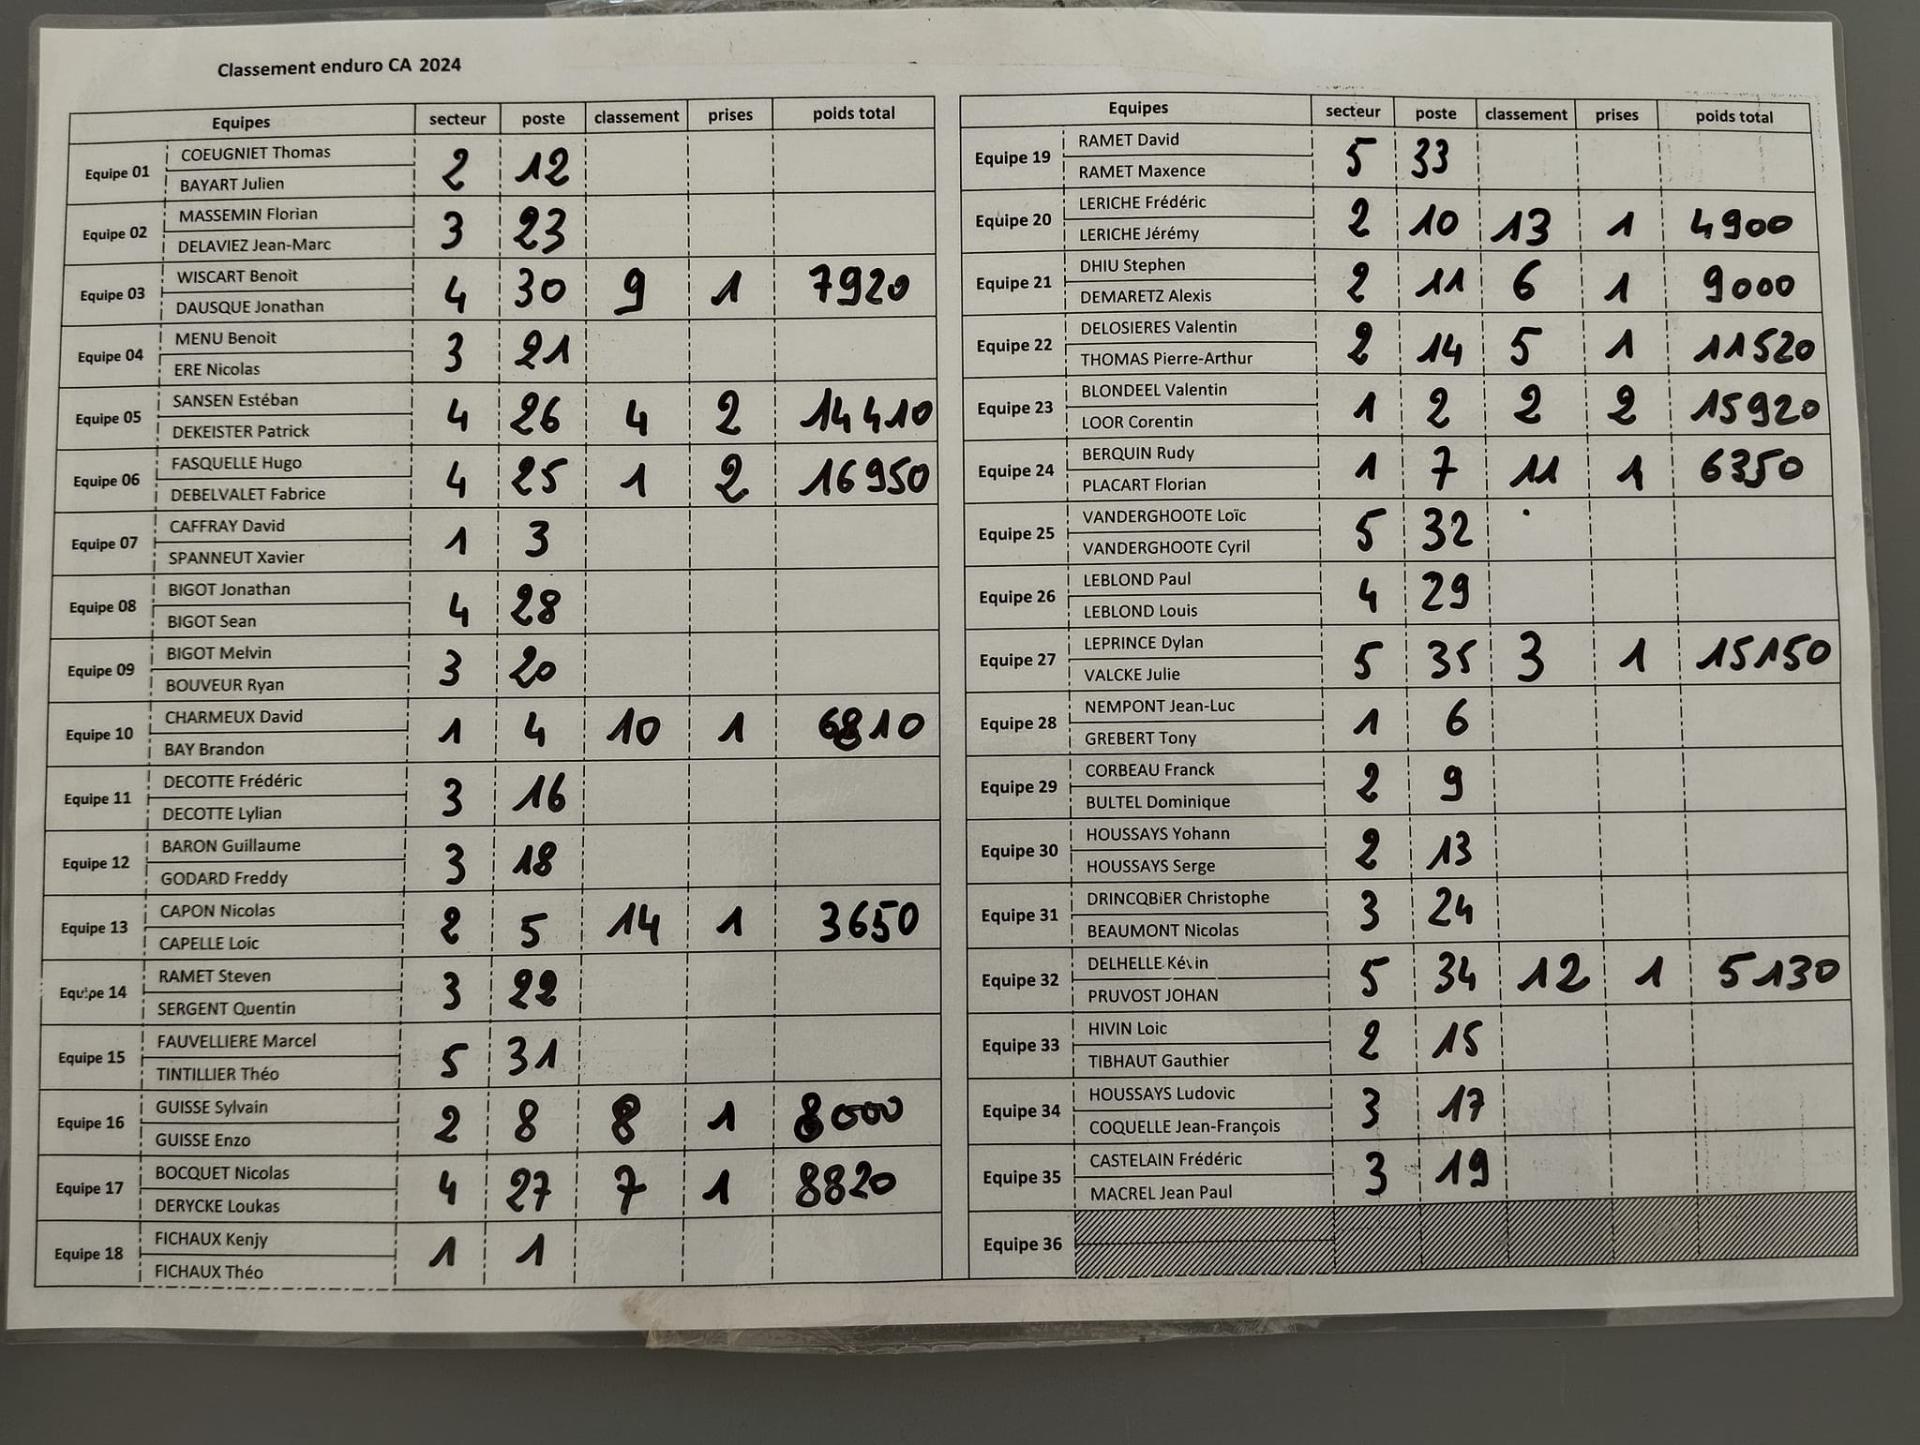 Classement enduro CA 2024
Equipes secteur poste classement prises poids total
Equipe 01 COEUGNIET Thomas 2 12
BAYART Julien
Equipe 02 MASSEMIN Florian 3 23
DELAVIEZ Jean-Marc
Equipe 03 WISCART Benoit 4 30 9 1 7920
DAUSQUE Jonathan
Equipe 04 MENU Benoit 3 21
ERE Nicolas
Equipe 05 SANSEN Estéban 4 26 4 2 14410
DEKEISTER Patrick
Equipe 06 FASQUELLE Hugo 4 25 1 2 16950
DEBELVALET Fabrice
Equipe 07 CAFFRAY David 1 3
SPANNEUT Xavier
Equipe 08 BIGOT Jonathan 4 28
BIGOT Sean
Equipe 09 BIGOT Melvin 3 20
BOUVEUR Ryan
Equipe 10 CHARMEUX David 1 4 10 1 6810
BAY Brandon
Equipe 11 DECOTTE Frédéric 3 16
DECOTTE Lylian
Equipe 12 BARON Guillaume 3 18
GODARD Freddy
Equipe 13 CAPON Nicolas 2 5 14 1 3650
CAPELLE Loic
Equipe 14 RAMET Steven 3 22
SERGENT Quentin
Equipe 15 FAUVELLIERE Marcel 5 31
TINTILLIER Théo
Equipe 16 GUISSE Sylvain 2 8 8 1 8000
GUISSE Enzo
Equipe 17 BOCQUET Nicolas 4 27 7 1 8820
DERYCKE Loukas
Equipe 18 FICHAUX Kenjy 1 1
FICHAUX Théo
Equipes secteur poste classement prises poids total
Equipe 19 RAMET David 5 33
RAMET Maxence
Equipe 20 LERICHE Frédéric 2 10 13 1 4900
LERICHE Jérémy
Equipe 21 DHIU Stephen 2 11 6 1 9000
DEMARETZ Alexis
Equipe 22 DELOSIERES Valentin 2 14 5 1 11520
THOMAS Pierre-Arthur
Equipe 23 BLONDEEL Valentin 1 2 2 2 15920
LOOR Corentin
Equipe 24 BERQUIN Rudy 1 7 11 1 6350
PLACART Florian
Equipe 25 VANDERGHOOTE Loïc 5 32
VANDERGHOOTE Cyril
Equipe 26 LEBLOND Paul 4 29
LEBLOND Louis
Equipe 27 LEPRINCE Dylan 5 35 3 1 15150
VALCKE Julie
Equipe 28 NEMPONT Jean-Luc 1 6
GREBERT Tony
Equipe 29 CORBEAU Franck 2 9
BULTEL Dominique
Equipe 30 HOUSSAYS Yohann 2 13
HOUSSAYS Serge
Equipe 31 DRINCQBiER Christophe 3 24
BEAUMONT Nicolas
Equipe 32 DELHELLE Kévin 5 34 12 1 5130
PRUVOST JOHAN
Equipe 33 HIVIN Loic 2 15
TIBHAUT Gauthier
Equipe 34 HOUSSAYS Ludovic 3 17
COQUELLE Jean-François
Equipe 35 CASTELAIN Frédéric 3 19
MACREL Jean Paul
Equipe 36